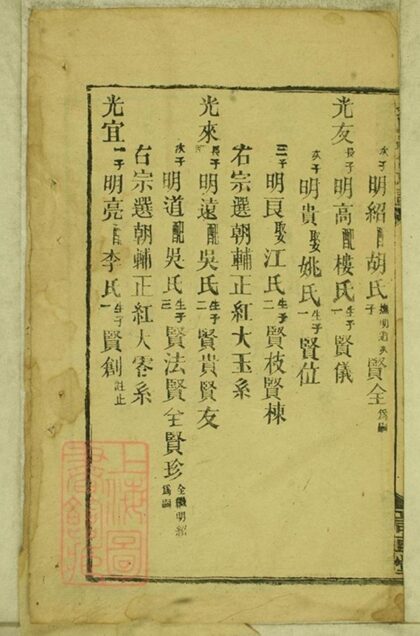 次子明紹配胡氏撫明道次子賢全為嗣
光友長子明高配樓氏生子一賢儀
次子明貴娶姚氏生子一賢位
三子明良娶江氏生子二賢枝賢棟
右宗選朝輔正紅大玉系
光來長子明遠配吳氏生子二賢貴賢友
次子明道配吳氏生子三賢法賢全賢珍全繼明紹為嗣
右宗選朝輔正紅大零系
光宜一子明亮配李氏生子一賢創註止
上海圖
書館藏